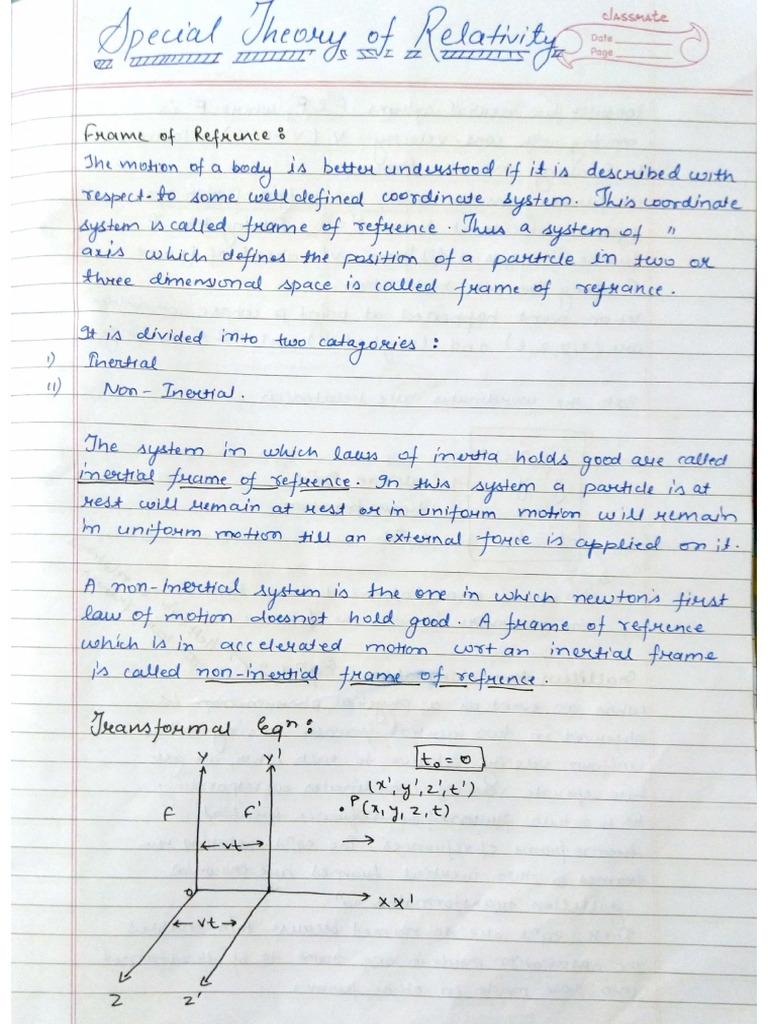 Special Theory of Relativity
classmate
Date
Page
Frame of Refrence:
The motion of a body is better understood if it is described with
respect to some well defined coordinate system. This coordinate
system is called frame of refrence. Thus a system of "
axis which defines the position of a particle in two or
three dimensional space is called frame of refrance.
It is divided into two catagories:
i) Inertial
ii) Non-Inertial.
The system in which laws of inertia holds good are called
inertial frame of refrence. In this system a particle is at
rest will remain at rest or in uniform motion will remain
in uniform motion till an external force is applied on it.
A non-inertial system is the one in which newton's first
law of motion doesnot hold good. A frame of refrence
which is in accelerated motion wrt an inertial frame
is called non-inertial frame of refrence.
Transformal Eqⁿ:
y y'
t₀ = 0
(x', y', z', t')
F F' .P(x, y, z, t)
←vt→ →
o
x x'
←vt→
z z'